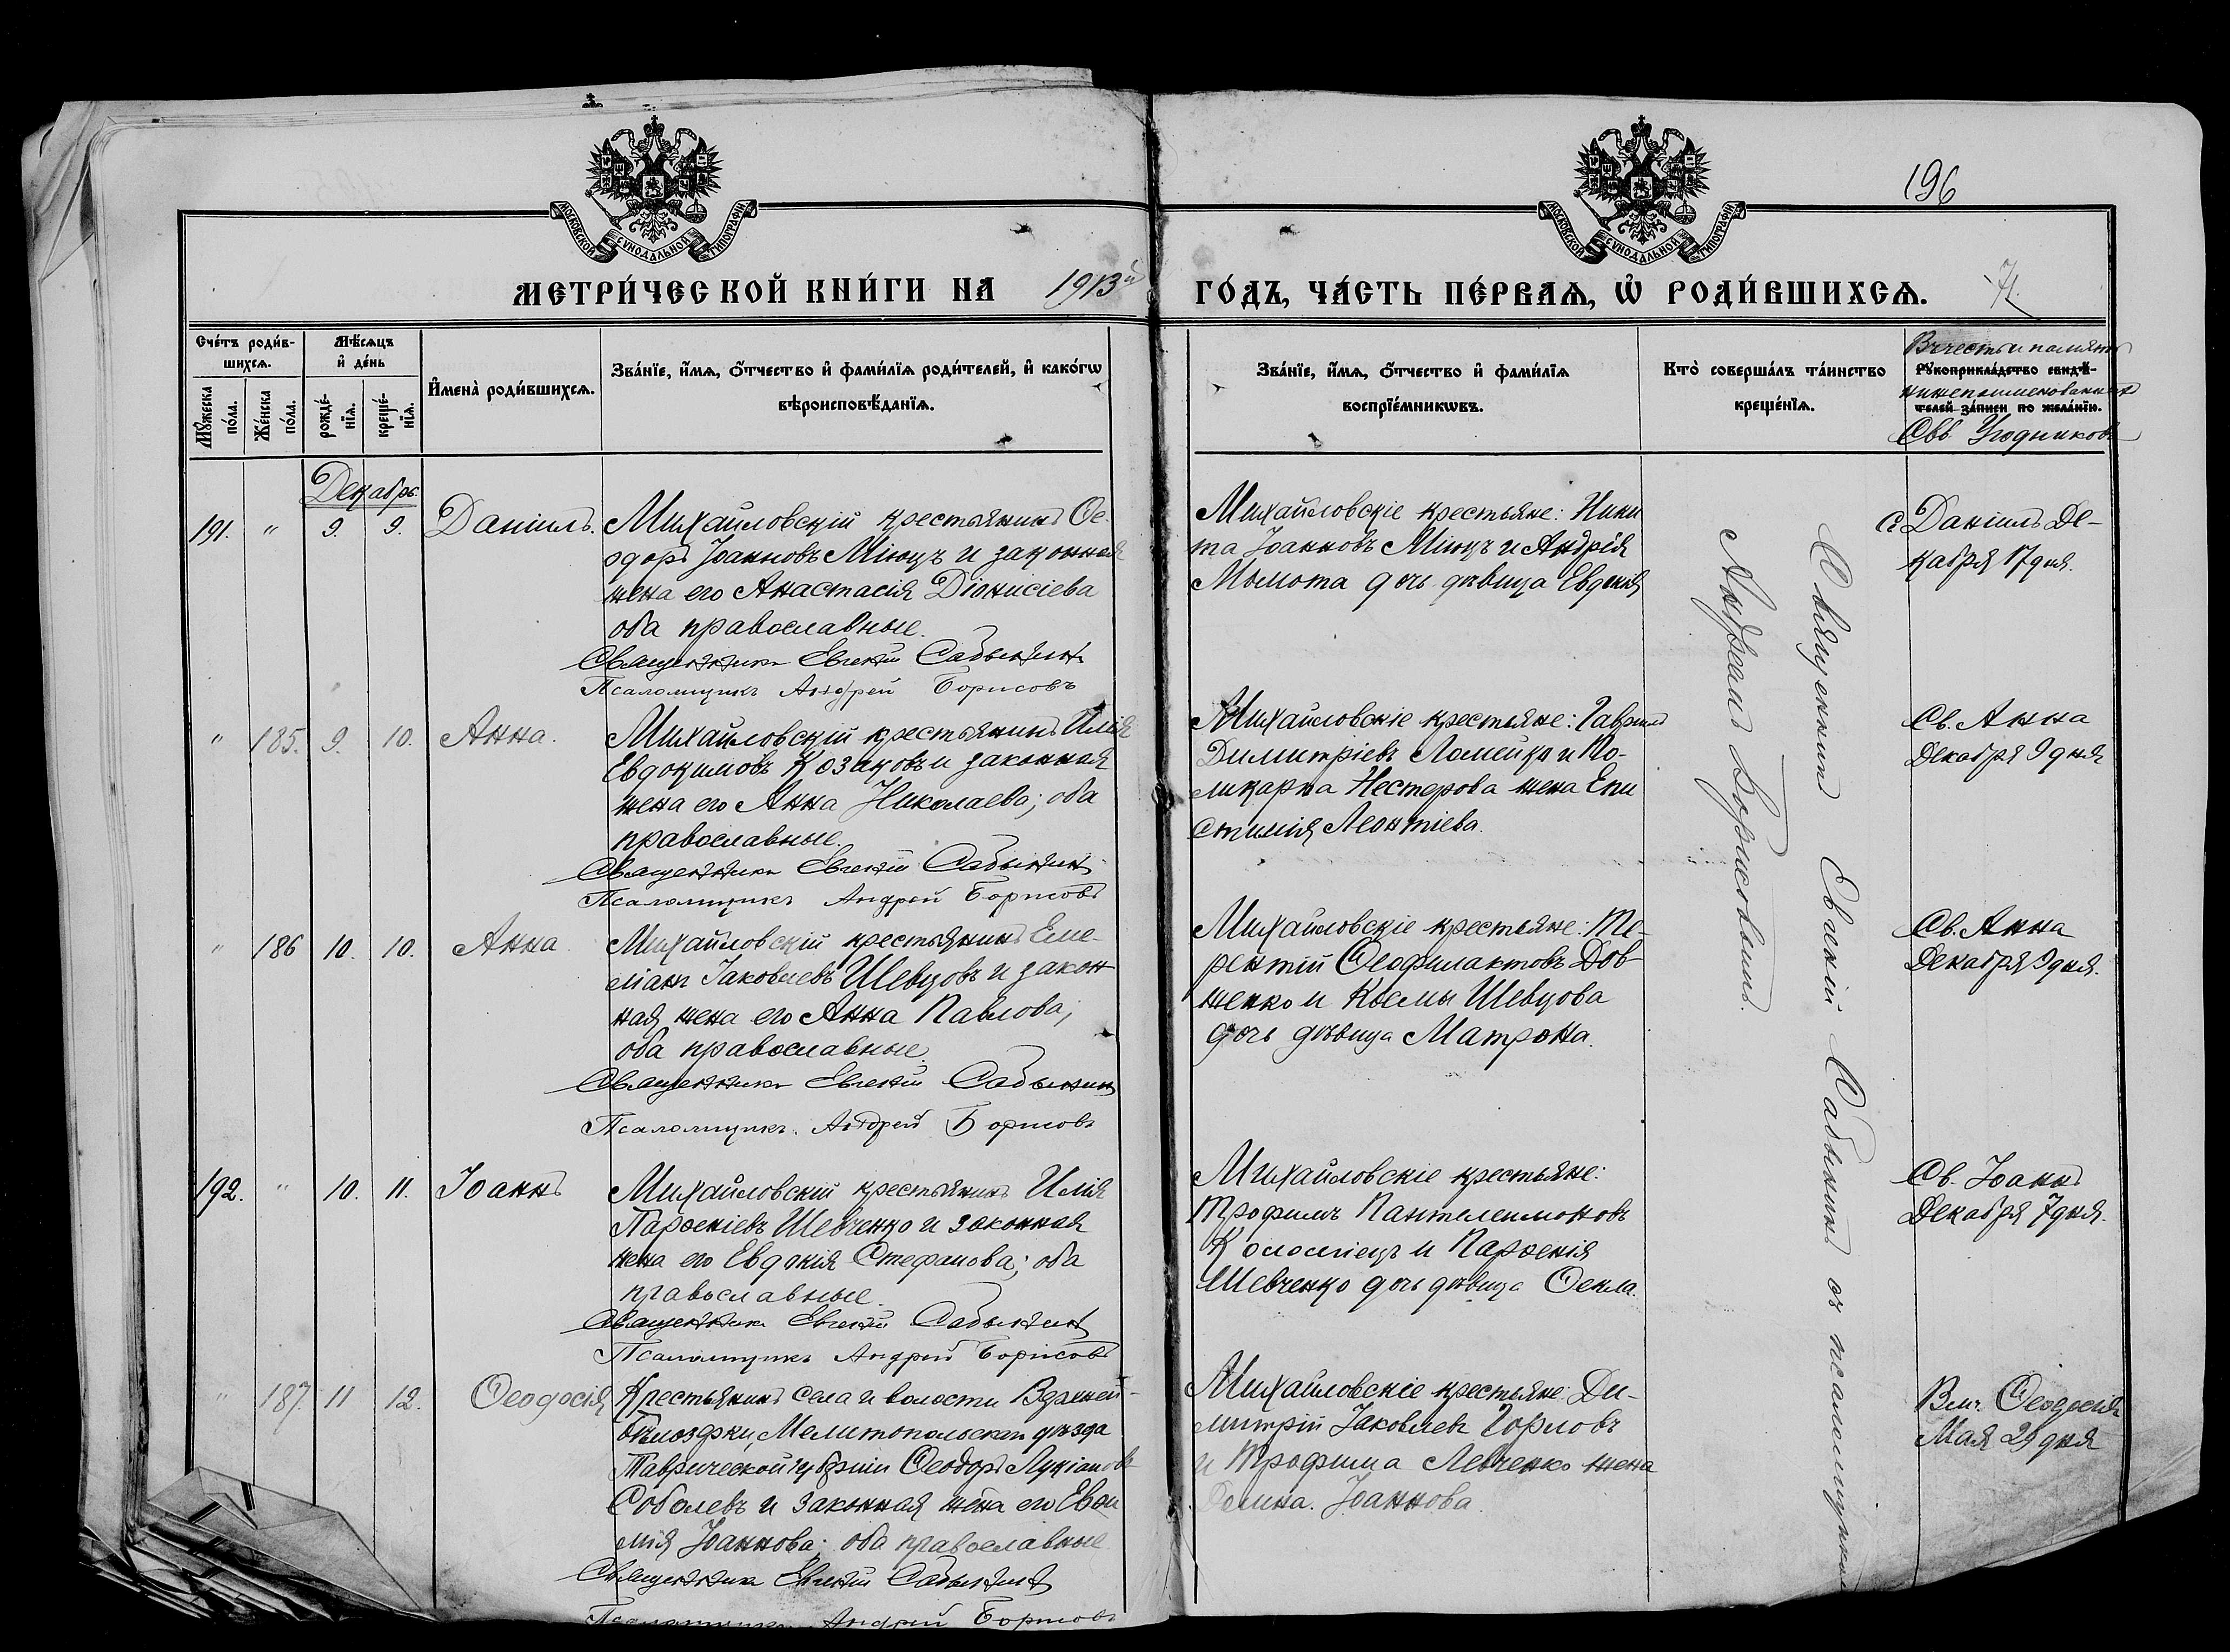 196
МОСКОВСКОЙ СѴНОДАЛЬНОЙ ТИПОГРАФІИ
МОСКОВСКОЙ СѴНОДАЛЬНОЙ ТИПОГРАФІИ
МЕТРИ́ЧЕСКОЙ КНИ́ГИ НА 1913й ГО́ДЪ, ЧА́СТЬ ПЕ́РВАѦ, Ѡ҆ РОДИ́ВШИХСѦ.
Сче́тъ роди́в-
шихсѧ.
Мꙋ́жеска по́ла.
Же́нска по́ла.
Мѣ́сѧцъ
и҆ де́нь
рожде́-
нїѧ.
креще́-
нїѧ.
И҆мена̀ роди́вшихсѧ.
Зва́нїе, и҆́мѧ, ѻ҆́тчество и҆ фами́лїѧ роди́телей, и҆ како́гѡ
вѣроисповѣ́данїѧ.
Зва́нїе, и҆́мѧ, ѻ҆́тчество и҆ фами́лїѧ
воспрїе́мникѡвъ.
Кто̀ соверша́лъ та́инство
креще́нїѧ.
Въ честь и память
Рꙋкоприкла́дство свидѣ́-
нижепоименованныхъ
телей за́писи по жела́нїю.
Свв. Угодниковъ
Декабрь.
191. " 9. 9. Даніилъ.
Михайловскій крестьянинъ Ѳе-
одоръ Іоанновъ Мінцъ и законная
жена его Анастасія Діонисіева
оба православные.
Священникъ Евгеній Сабынинъ
Псаломщикъ Андрей Борисовъ
Михайловскіе крестьяне: Ники
та Іоанновъ Мінцъ и Андрія
Момота дочь дѣвица Евдокія
Св. Даніилъ Де-
кабря 17 дня.
" 185. 9. 10. Анна.
Михайловскій крестьянинъ Илія
Евдокимовъ Козаковъ и законная
жена его Анна Николаева; оба
православные.
Священникъ Евгеній Сабынинъ
Псаломщикъ Андрей Борисовъ
Михайловскіе крестьяне: Гавріилъ
Димитріевъ Ломейко и По-
ликарпа Нестерова жена Епи
стимія Леонтіева.
Св. Анна
Декабря 9 дня
" 186 10. 10. Анна
Михайловскій крестьянинъ Еме-
ліанъ Іаковлевъ Шевцовъ и закон
ная жена его Анна Павлова;
оба православные.
Священникъ Евгеній Сабынинъ
Псаломщикъ Андрей Борисовъ
Михайловскіе крестьяне: Те-
рентій Ѳеофилактовъ Дов-
женко и Космы Шевцова
дочь дѣвица Матрона.
Св. Анна
Декабря 9 дня.
192. " 10. 11. Іоаннъ
Михайловскій крестьянинъ Илія
Парѳеніевъ Шевченко и законная
жена его Евдокія Стефанова; оба
православные.
Священникъ Евгеній Сабынинъ
Псаломщикъ Андрей Борисовъ
Михайловскіе крестьяне:
Трофимъ Пантелеимоновъ
Коломіецъ и Парѳенія
Шевченко дочь дѣвица Ѳекла.
Св. Іоаннъ
Декабря 7 дня.
" 187. 11 12. Ѳеодосія
Крестьянинъ села и волости Верхней-
Бѣлозерки, Мелитопольскаго уѣзда
Таврической губерніи Ѳеодоръ Лукіановъ
Соболевъ и законная жена его Евѳи
мія Іоаннова; оба православные
Священникъ Евгеній Сабынинъ
Псаломщикъ Андрей Борисовъ
Михайловскіе крестьяне: Ди-
митрій Іаковлевъ Горловъ
и Трофима Левченко жена
Іоаннова.
Влч. Ѳеодосія
Мая 29 дня
Священникъ Евгеній Сабынинъ съ псаломщикомъ
Андреемъ Борисовымъ.